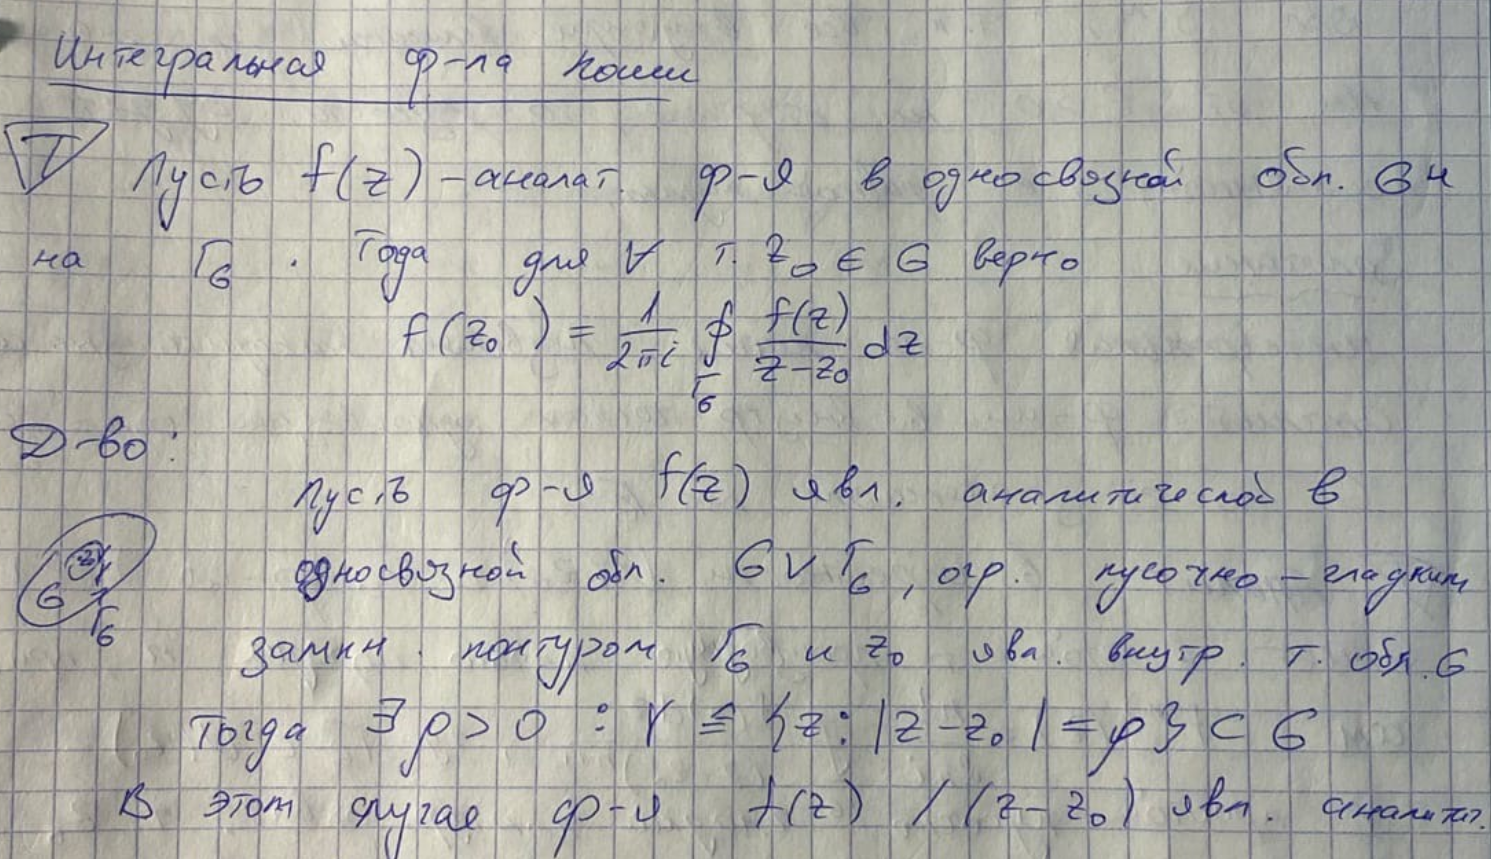 Интегральная ф-ла Коши
T Пусть f(z) - аналит. ф-я в односвязной обл. G и
на Γ_G. Тода для ∀ т. z₀ ∈ G верно
f(z₀) = 1/(2πi) ∮_Γ_G f(z)/(z-z₀) dz
Д-во:
Пусть ф-я f(z) явл. аналитической в
односвязной обл. G ∨ Γ_G, огр. кусочно-гладким
G z₀ γ Γ_G
замкн. контуром Γ_G и z₀ явл. внутр. т. обл. G
Тогда ∃ ρ > 0 : γ ≝ {z: |z-z₀| = ρ} ⊂ G
В этом случае ф-я f(z) / (z-z₀) явл. аналитич.